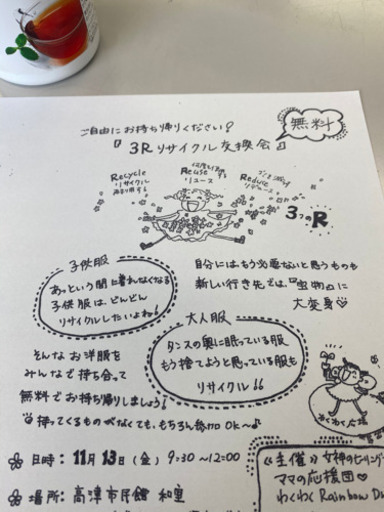 ご自由にお持ち帰りください!
無料
『3Rリサイクル交換会』
Recycle
リサイクル
Reuse
リユース
Reduce
リデュース
3つのR
子供服
あっという間に着れなくなる
子供服は、どんどん
リサイクルしたいよね!
自分にはもう必要ないと思うものも
新しい行き先では、『宝物』に
大変身♡
大人服
タンスの奥に眠っている服
もう捨てようと思っている服も
リサイクル!!
そんなお洋服を
みんなで持ち合って
無料でお持ち帰りしましょう!
持ってくるものがなくても、もちろん参加OK〜♪
わくわく広場
日時: 11月13日(金) 9:30〜12:00
場所: 高津市民館 和室
《主催》女神のヒーリング
ママの応援団♡
わくわく Rainbow